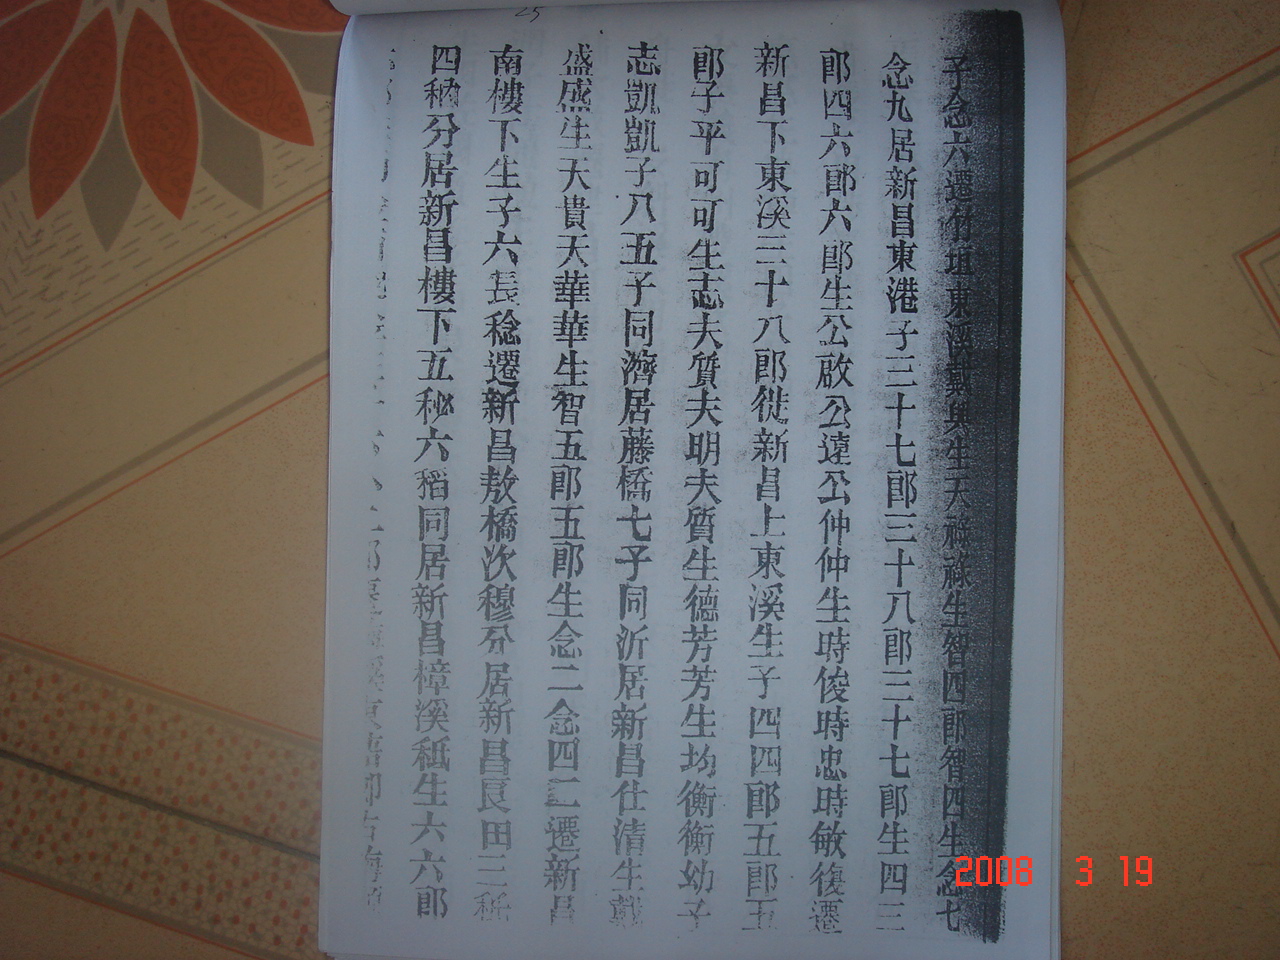 25
子念六遷竹垣東溪戴興生天祿祿生智四郎智四生念七
念九居新昌東港子三十七郎三十八郎三十七郎生四三
郎四六郎六郎生公啟公達公仲仲生時俊時忠時敏復遷
新昌下東溪三十八郎徙新昌上東溪生子四四郎五郎五
郎子平可可生志夫質夫明夫質生德芳芳生均衡衡幼子
志凱凱子八五子同濟居藤橋七子同沂居新昌仕清生戴
盛盛生天貴天華華生智五郎五郎生念二念四二遷新昌
南樓下生子六長稔遷新昌敖橋次穆分居新昌良田三秖
四稱分居新昌樓下五秘六稻同居新昌樟溪秪生六六郎
2008 3 19